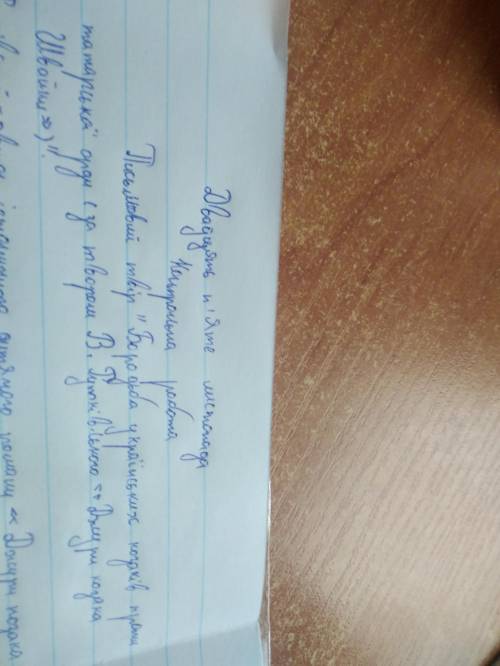 Двадцять п'яте листопада
Контрольна робота
Письмовий твір "Боротьба українських козаків проти
татарської орди (за твором В. Рутківського «Джури козака
Швайки»)"
роману «Джури козака